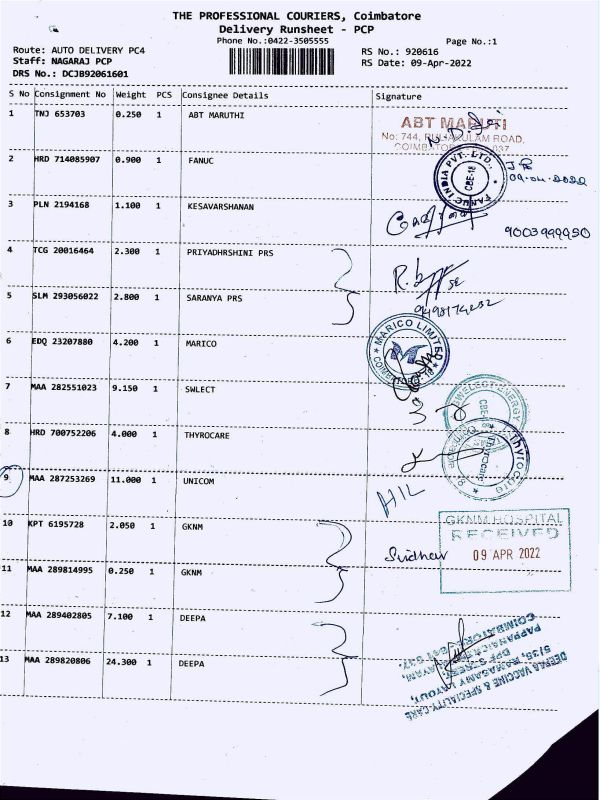 THE PROFESSIONAL COURIERS, Coimbatore
Delivery Runsheet - PCP
Phone No.:0422-3505555 Page No.:1
Route: AUTO DELIVERY PC4 RS No.: 920616
Staff: NAGARAJ PCP RS Date: 09-Apr-2022
DRS No.: DCJB92061601
S No Consignment No Weight PCS Consignee Details Signature
1 TNJ 653703 0.250 1 ABT MARUTHI
ABT MARUTI
No: 744, PULIAKULAM ROAD,
COIMBATORE 037
2 HRD 714085907 0.900 1 FANUC
FANUC INDIA PVT. LTD.,
CBE-18
09.04.2022
3 PLN 2194168 1.100 1 KESAVARSHANAN
9003999950
4 TCG 20016464 2.300 1 PRIYADHRSHINI PRS
5 SLM 293056022 2.800 1 SARANYA PRS
6 EDQ 23207880 4.200 1 MARICO
MARICO LIMITED
7 MAA 282551023 9.150 1 SWLECT
SWELECT ENERGY
8 HRD 700752206 4.000 1 THYROCARE
Thyrocare
9 MAA 287253269 11.000 1 UNICOM
10 KPT 6195728 2.050 1 GKNM
GKNM HOSPITAL
RECEIVED
Sridhar 09 APR 2022
11 MAA 289814995 0.250 1 GKNM
12 MAA 289402805 7.100 1 DEEPA
13 MAA 289820806 24.300 1 DEEPA
DEEPAA VACCINE & SPECIALITY CARE
5/35, RAMASAMY LAYOUT,